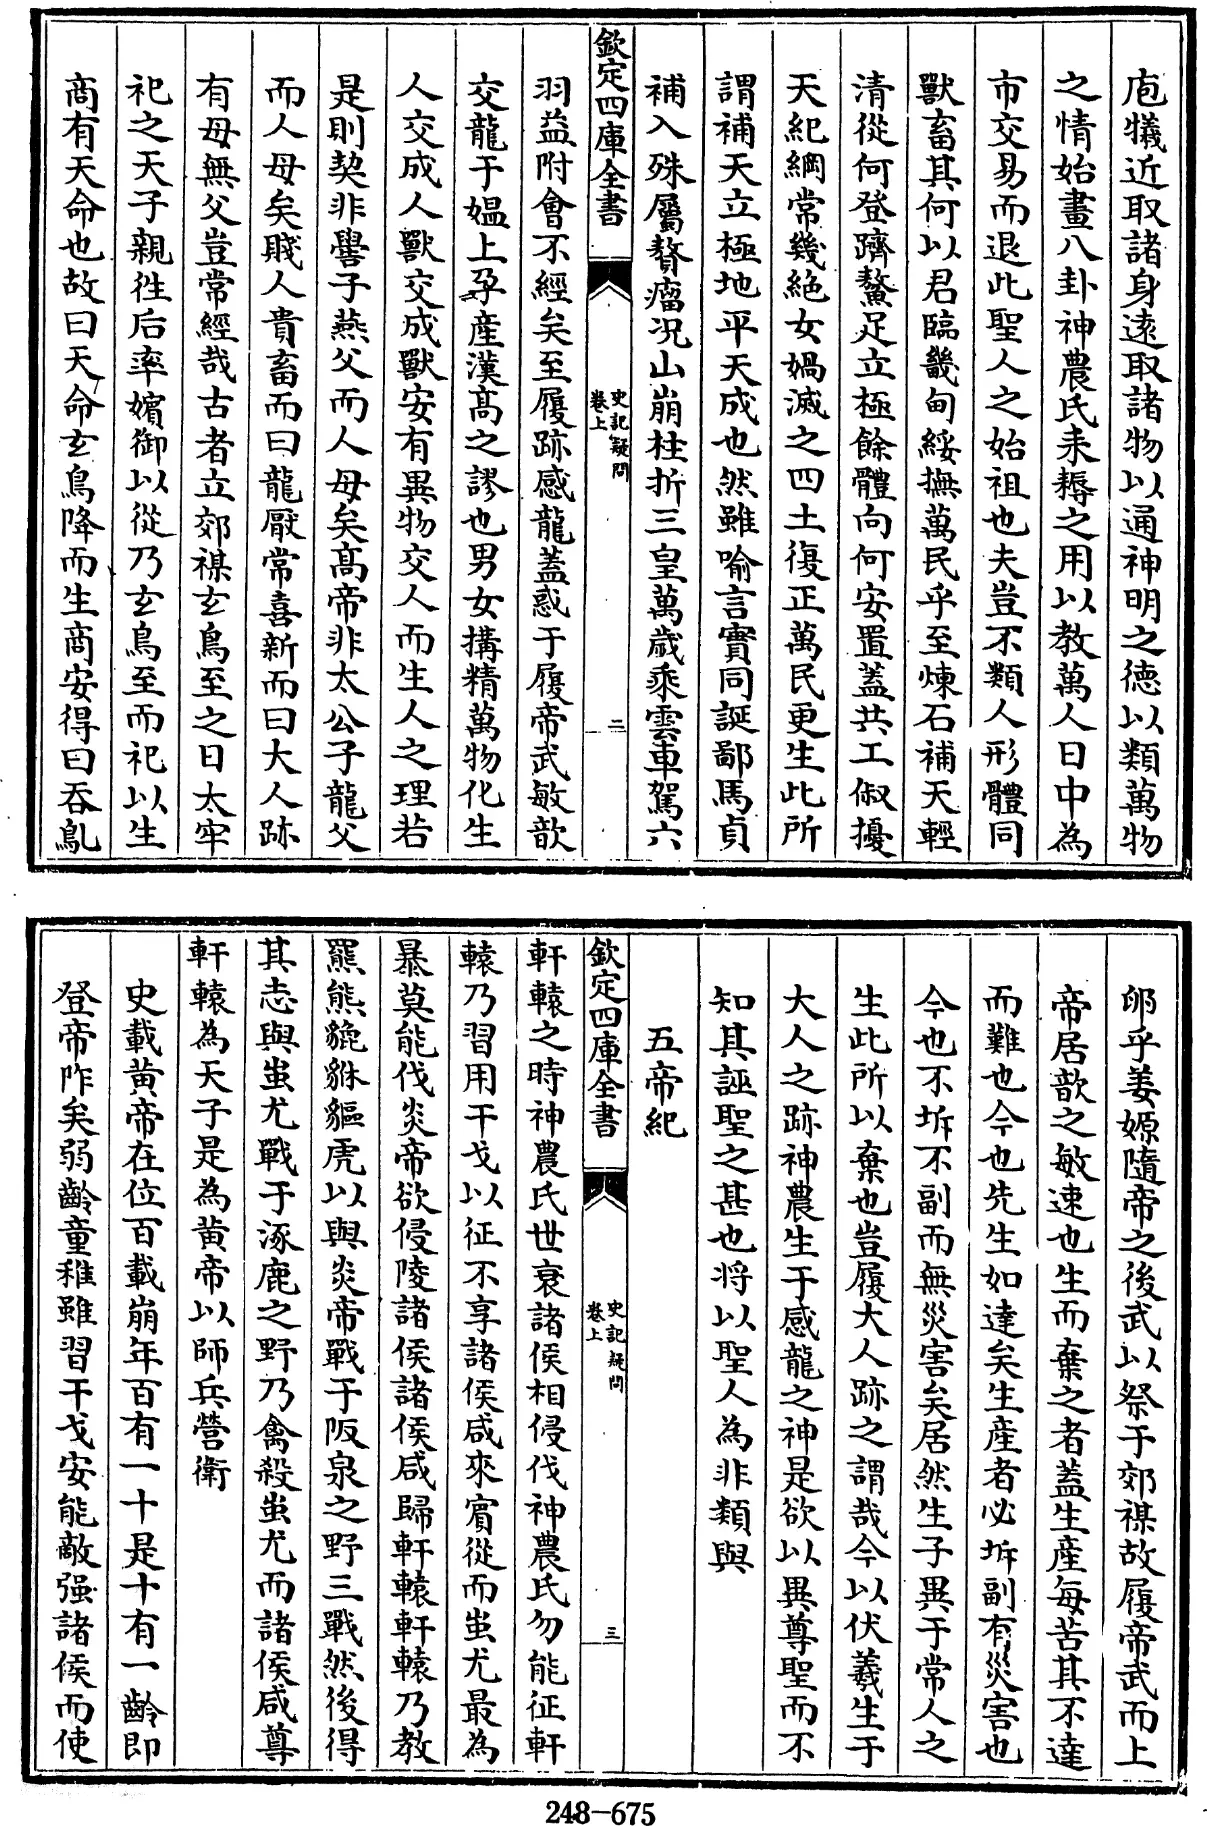 庖犧近取諸身遠取諸物以通神明之德以類萬物
之情始畫八卦神農氏耒耨之用以教萬人日中為
市交易而退此聖人之始祖也夫豈不類人形體同
獸畜其何以君臨畿甸綏撫萬民乎至煉石補天輕
清從何登躋鰲足立極餘體向何安置蓋共工俶擾
天紀綱常幾絶女媧滅之四土復正萬民更生此所
謂補天立極地平天成也然雖喻言實同誕鄙馬貞
補入殊屬贅瘤况山崩柱折三皇萬歲乘雲車駕六
欽定四庫全書
史記疑問
卷上
二
羽益附會不經矣至履跡感龍蓋惑于履帝武敏歆
交龍于媪上孕產漢髙之謬也男女搆精萬物化生
人交成人獸交成獸安有異物交人而生人之理若
是則契非嚳子燕父而人母矣髙帝非太公子龍父
而人母矣賤人貴畜而曰龍厭常喜新而曰大人跡
有母無父豈常經哉古者立郊禖玄鳥至之日太牢
祀之天子親徃后率嬪御以從乃玄鳥至而祀以生
商有天命也故曰天命玄鳥降而生商安得曰吞鳦
卵乎姜嫄隨帝之後武以祭于郊禖故履帝武而上
帝居歆之敏速也生而棄之者蓋生產每苦其不達
而難也今也先生如達矣生產者必坼副有災害也
今也不坼不副而無災害矣居然生子異于常人之
生此所以棄也豈履大人跡之謂哉今以伏羲生于
大人之跡神農生于感龍之神是欲以異尊聖而不
知其誣聖之甚也将以聖人為非類與
五帝紀
欽定四庫全書
史記疑問
卷上
三
軒轅之時神農氏世衰諸侯相侵伐神農氏勿能征軒
轅乃習用干戈以征不享諸侯咸來賓從而蚩尤最為
暴莫能伐炎帝欲侵陵諸侯諸侯咸歸軒轅軒轅乃教
羆熊貔貅貙虎以與炎帝戰于阪泉之野三戰然後得
其志與蚩尤戰于涿鹿之野乃禽殺蚩尤而諸侯咸尊
軒轅為天子是為黄帝以師兵營衛
史載黄帝在位百載崩年百有一十是十有一齡即
登帝咋矣弱齡童稚雖習干戈安能敵强諸侯而使
248-675